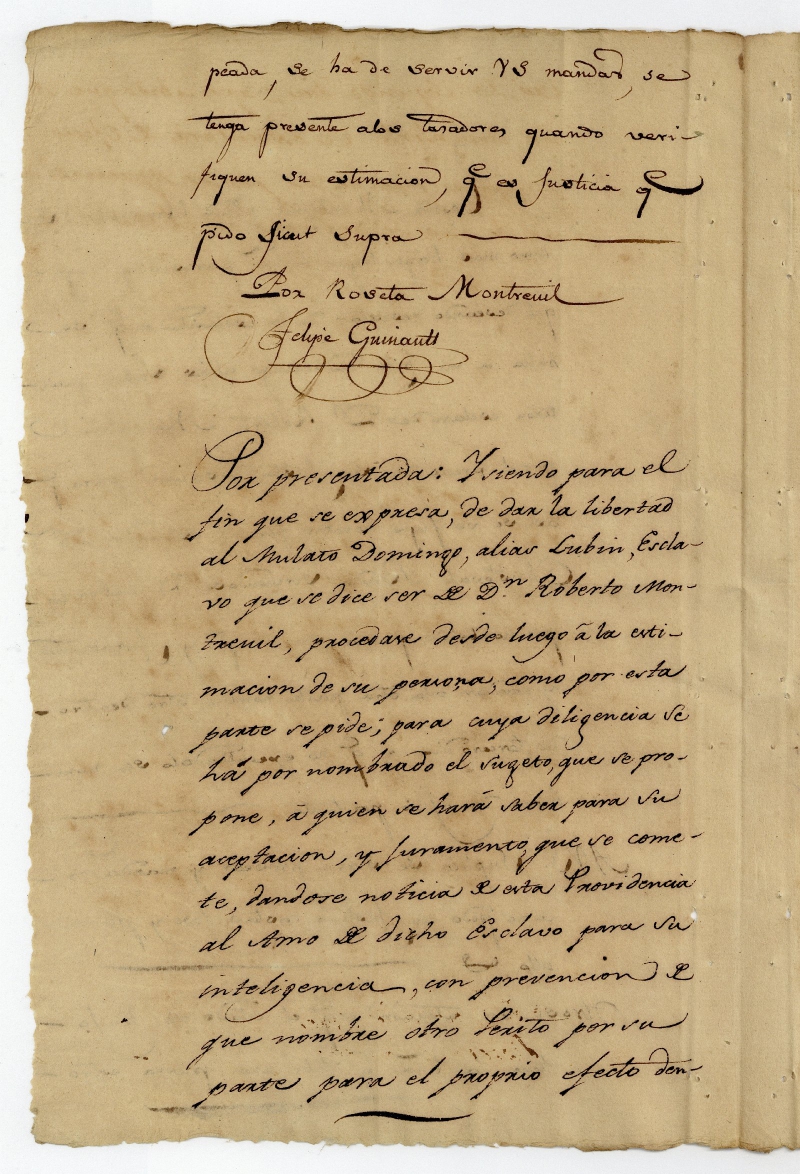 peada, se ha de servir VS mandar, se
tenga presente alos tasadores, quando veri-
fiquen su estimacion, qe es Justicia qe
pido Sicut Supra
Por Roseta Montreuil
Felipe Guinault
Por presentada: Y siendo para el
fin que se expresa, de dar la libertad
al Mulato Domingo, alias Lubin, Escla-
vo que se dice ser de Dn Roberto Mon-
treuil, procedase desde luego â la esti-
macion de su persona, como por esta
parte se pide; para cuya diligencia se
há por nombrado el sugeto, que se pro-
pone, â quien se hará saber para su
aceptacion, y juramento, que se come-
te, dandose noticia de esta Providencia
al Amo de dicho Esclavo para su
inteligencia, con prevencion de
que nombre otro Perito por su
parte para el proprio efecto den-